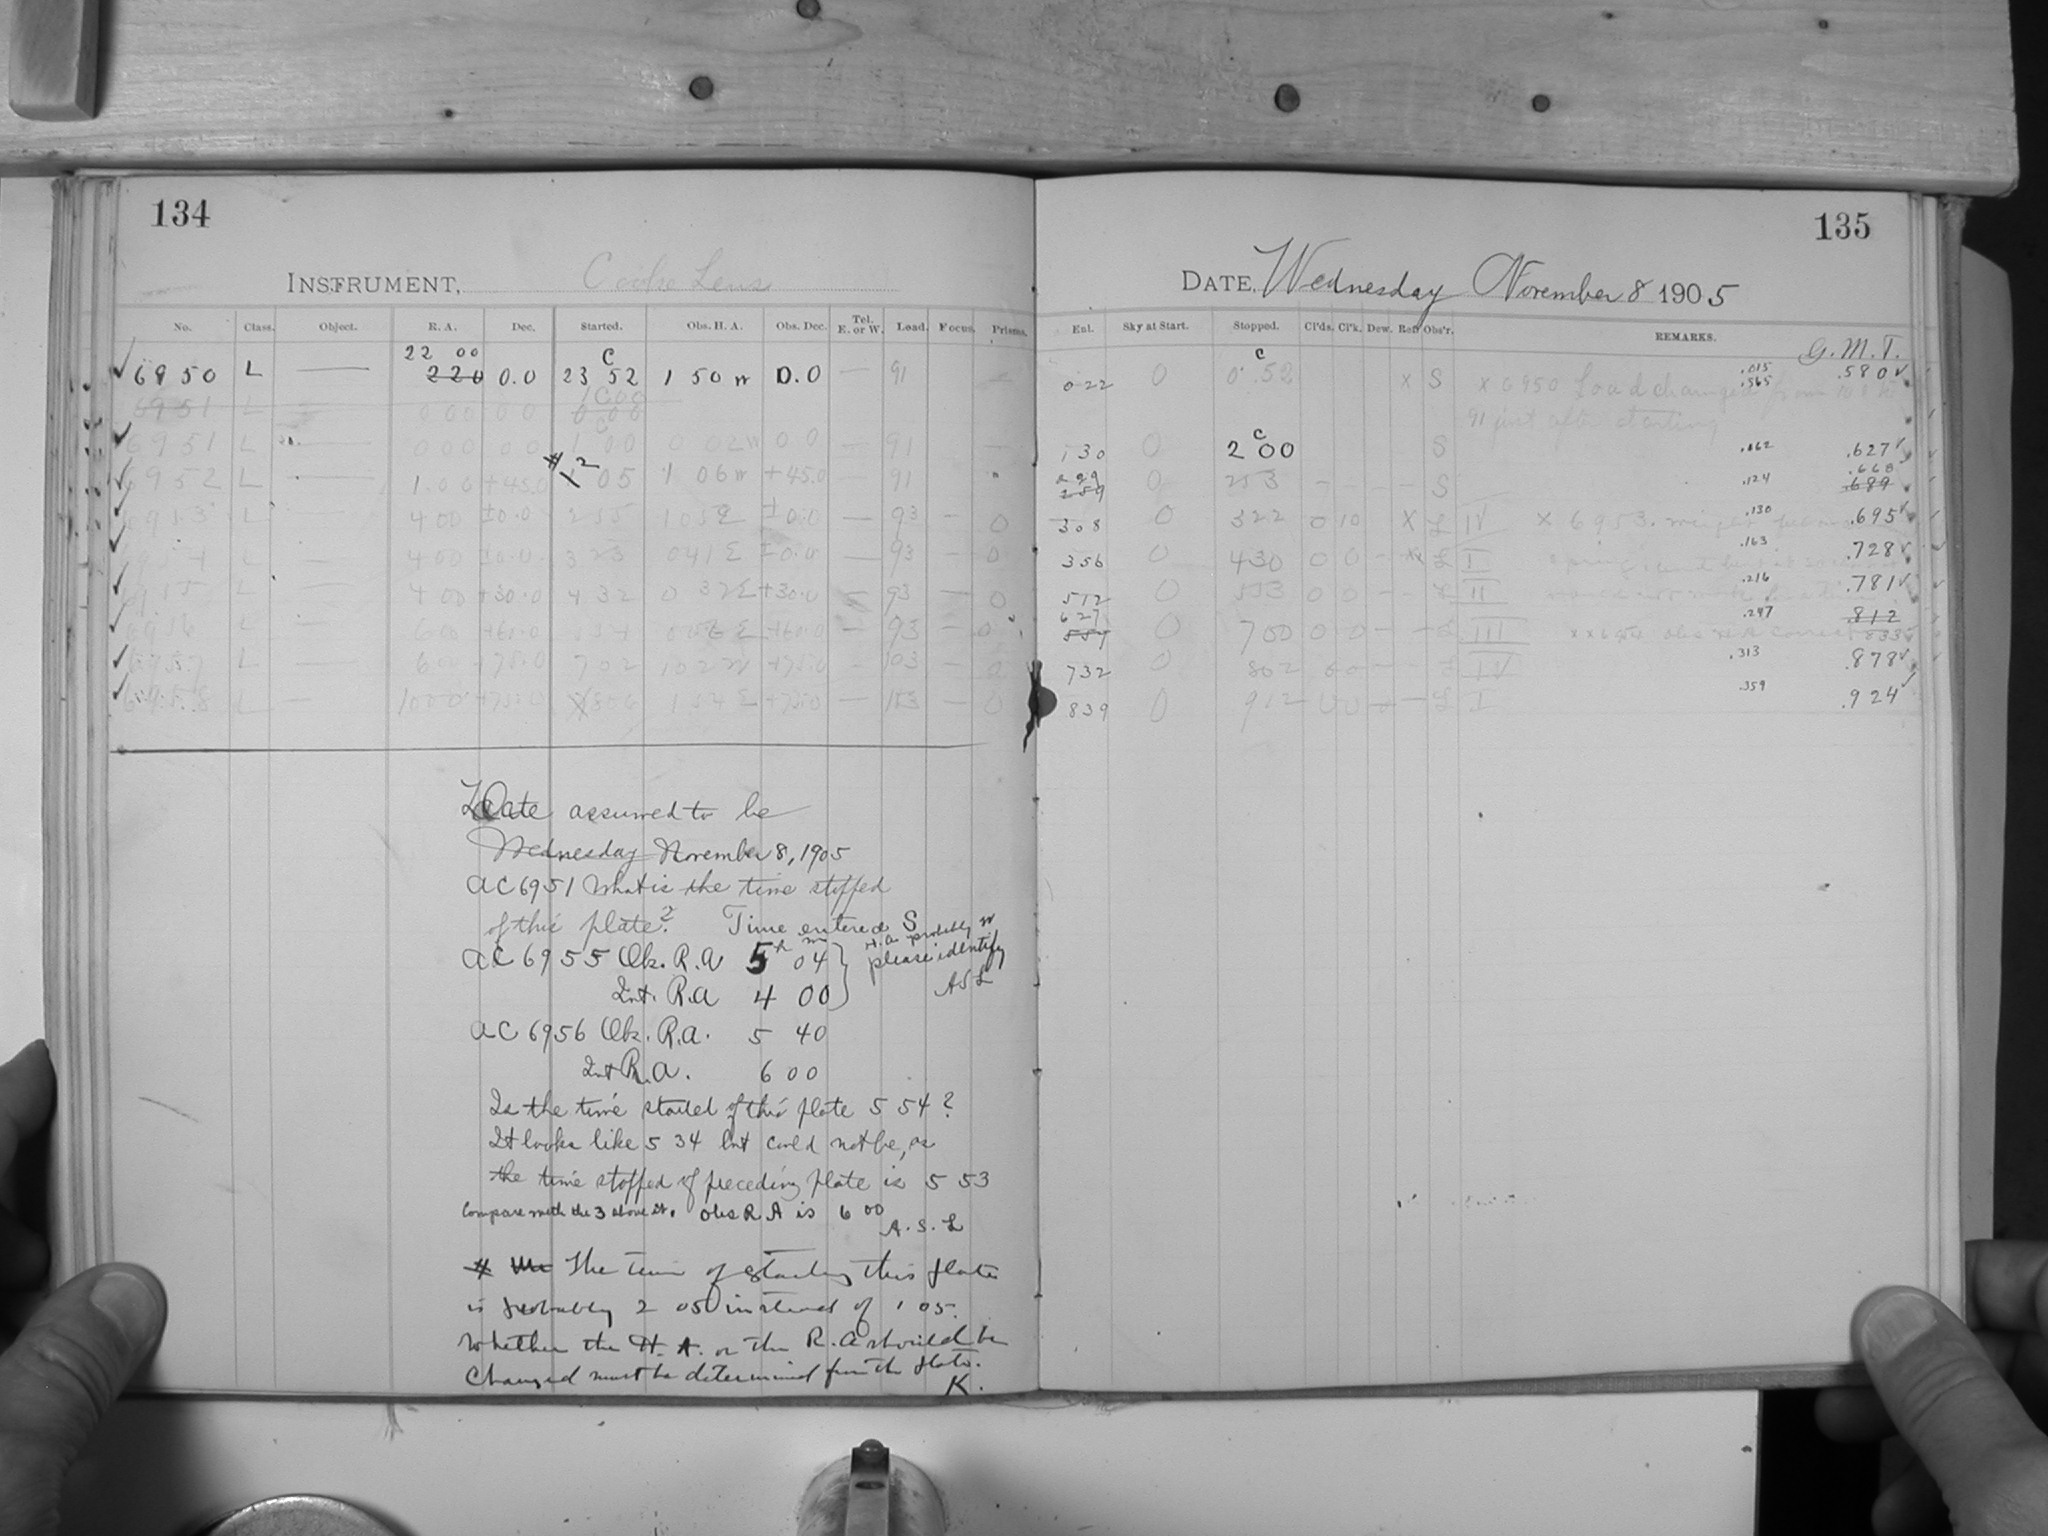 134
INSTRUMENT, Cooke Lens
No. Class. Object. R. A. Dec. Started. Obs. H. A. Obs. Dec. Tel. E. or W. Load. Focus. Prisms.
22 00
6950 L — 220 0.0 23 52 1 50 w 0.0 — 91
6951 L — 0 00 0 0
6951 L — 0 00 0 0 1 00 0 02 w 0 0 — 91
6952 L — 1 00 +45.0 2 05 1 06 w +45.0 — 91
6953 L — 4 00 ±0.0 2 55 1 05 E ±0.0 — 93 — 0
6954 L — 4 00 ±0.0 3 23 0 41 E ±0.0 — 93 — 0
6955 L — 4 00 +30.0 4 32 0 32 E +30.0 — 93 — 0
6956 L — 6 00 +60.0 +60.0 — 93 — 0
6957 L — 6 00 +75.0 7 02 1 02 w +75.0 — 103 — 0
6958 L — 10 00 +75.0 1 54 E +75.0 — 103 — 0
Date assumed to be
Wednesday November 8, 1905
AC 6951 What is the time stopped
of this plate? Time entered S
H.A. probably w
AC 6955 Obs. R.A 5h 04m please identify
Int. R.A 4 00 ASL
AC 6956 Obs. R.A. 5 40
Int R.A. 6 00
Is the time started of this plate 5 54?
It looks like 5 34 but could not be, as
the time stopped of preceding plate is 5 53
Compare with the 3 above it. Obs R A is 6 00
A. S. L
# The time of starting this plate
is probably 2 05 instead of 1 05.
Whether the H. A. or the R. A should be
changed must be determined from the plate.
K.
135
DATE, Wednesday November 8 1905
Eul. Sky at Start. Stopped. Cl'ds. Cl'k. Dew. Ref. Obs'r. REMARKS.
G. M. T.
0 22 0 0 52 x S x 6950 Load changed from .015 .565 .580
91 just after starting
1 30 0 2 00 S .062 .627
.668
2 29 259 0 2 53 — — — — S .124 689
3 08 0 3 22 0 10 x L IV x 6953. .130 .695
3 56 0 4 30 0 0 — xx L I .163 .728
5 12 0 5 53 0 0 — — L II .216 .781
6 27 557 0 7 00 0 0 — — L III .247 812 833
7 32 0 8 02 0 0 — — L IV .313 .878
8 39 0 9 12 0 0 — — L I .359 .924